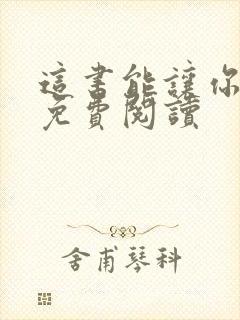 這書能讓你
免費閱讀
舍甫琴科